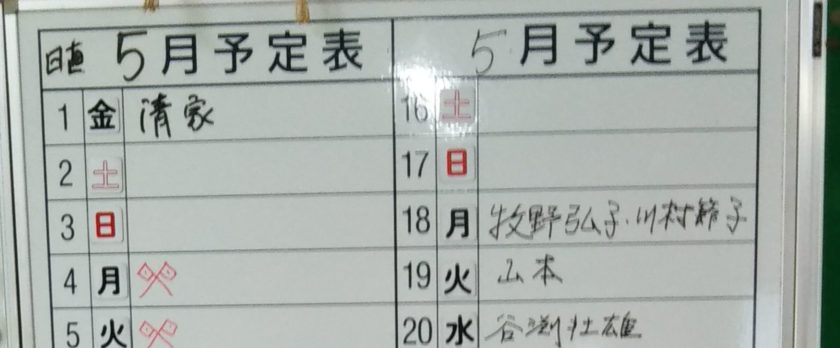 日直 5月予定表
1 金 清家
2 土
3 日
4 月
5 火
5月予定表
16 土
17 日
18 月 牧野弘子・川村節子
19 火 山本
20 水 谷渕壮雄